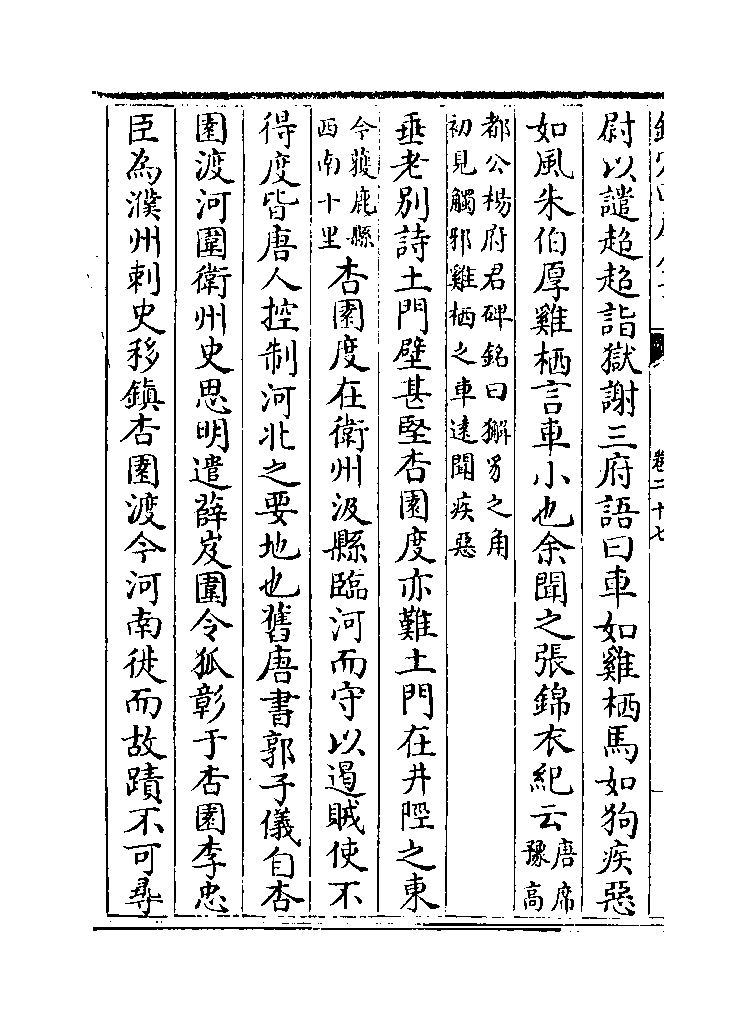 卷二十七
尉以譴超超詣獄謝三府語曰車如雞栖馬如狗疾惡
如風朱伯厚雞栖言車小也余聞之張錦衣紀云唐席
豫高
都公楊府君碑銘曰獬豸之角
初見觸邪雞栖之車逺聞疾惡
垂老别詩土門壁甚堅杏園度亦難土門在井陘之東
今獲鹿縣
西南十里
杏園度在衛州汲縣臨河而守以遏賊使不
得度皆唐人控制河北之要地也舊唐書郭子儀自杏
園渡河圍衛州史思明遣薛岌圍令狐彰于杏園李忠
臣為濮州刺史移鎮杏園渡今河南徙而故蹟不可尋